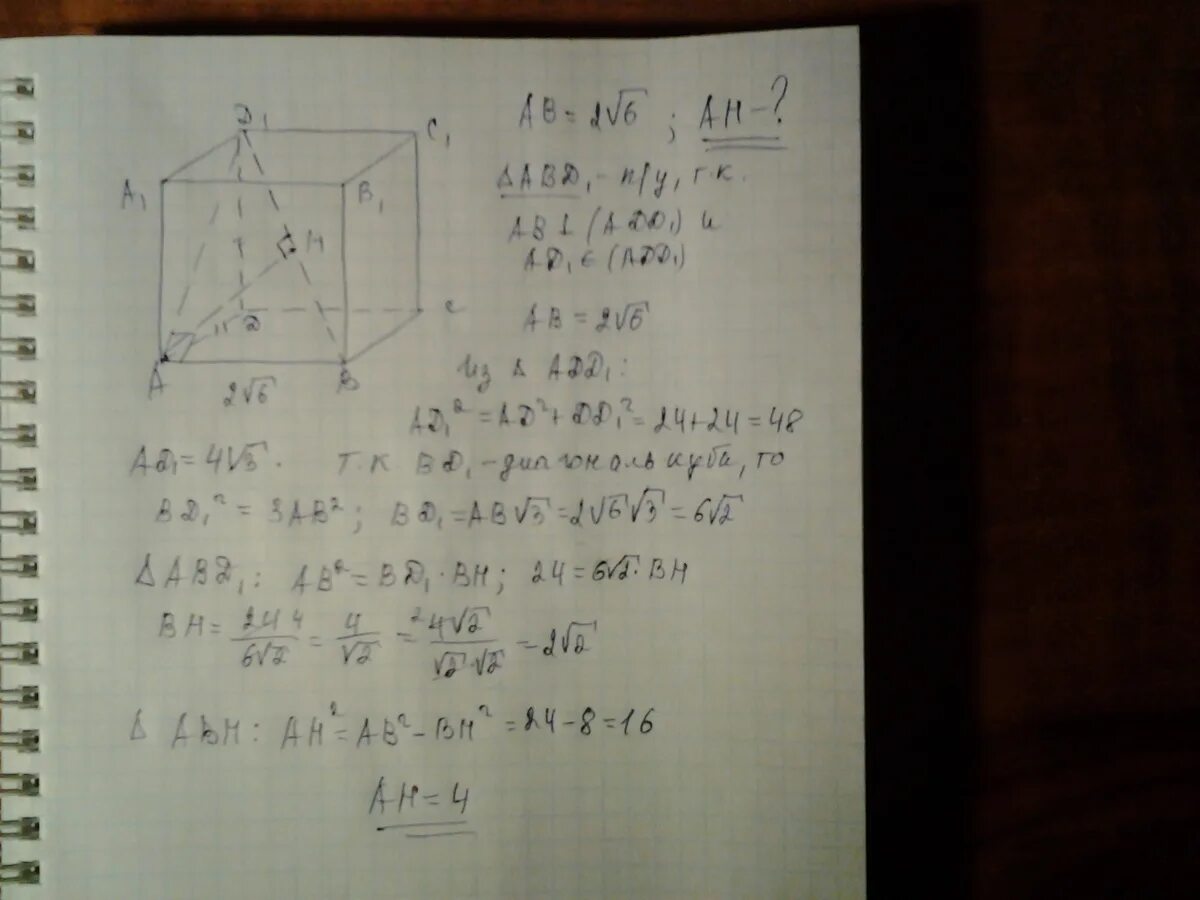 D₁
C₁
A₁
B₁
H
D
C
A
B
2√6
AB = 2√6 ; AH - ?
△ABD₁ - п/у, т.к.
AB ⊥ (ADD₁) и
AD₁ ∈ (ADD₁)
AB = 2√6
из △ ADD₁:
AD₁² = AD² + DD₁² = 24 + 24 = 48
AD₁ = 4√3. т.к. BD₁ - диагональ куба, то
BD₁² = 3AB²; BD₁ = AB√3 = 2√6√3 = 6√2
△ABD₁: AB² = BD₁ · BH; 24 = 6√2 · BH
BH = 24 4 / 6√2 = 4/√2 = 2 4√2 / √2·√2 = 2√2
△ ABH: AH² = AB² - BH² = 24 - 8 = 16
AH = 4